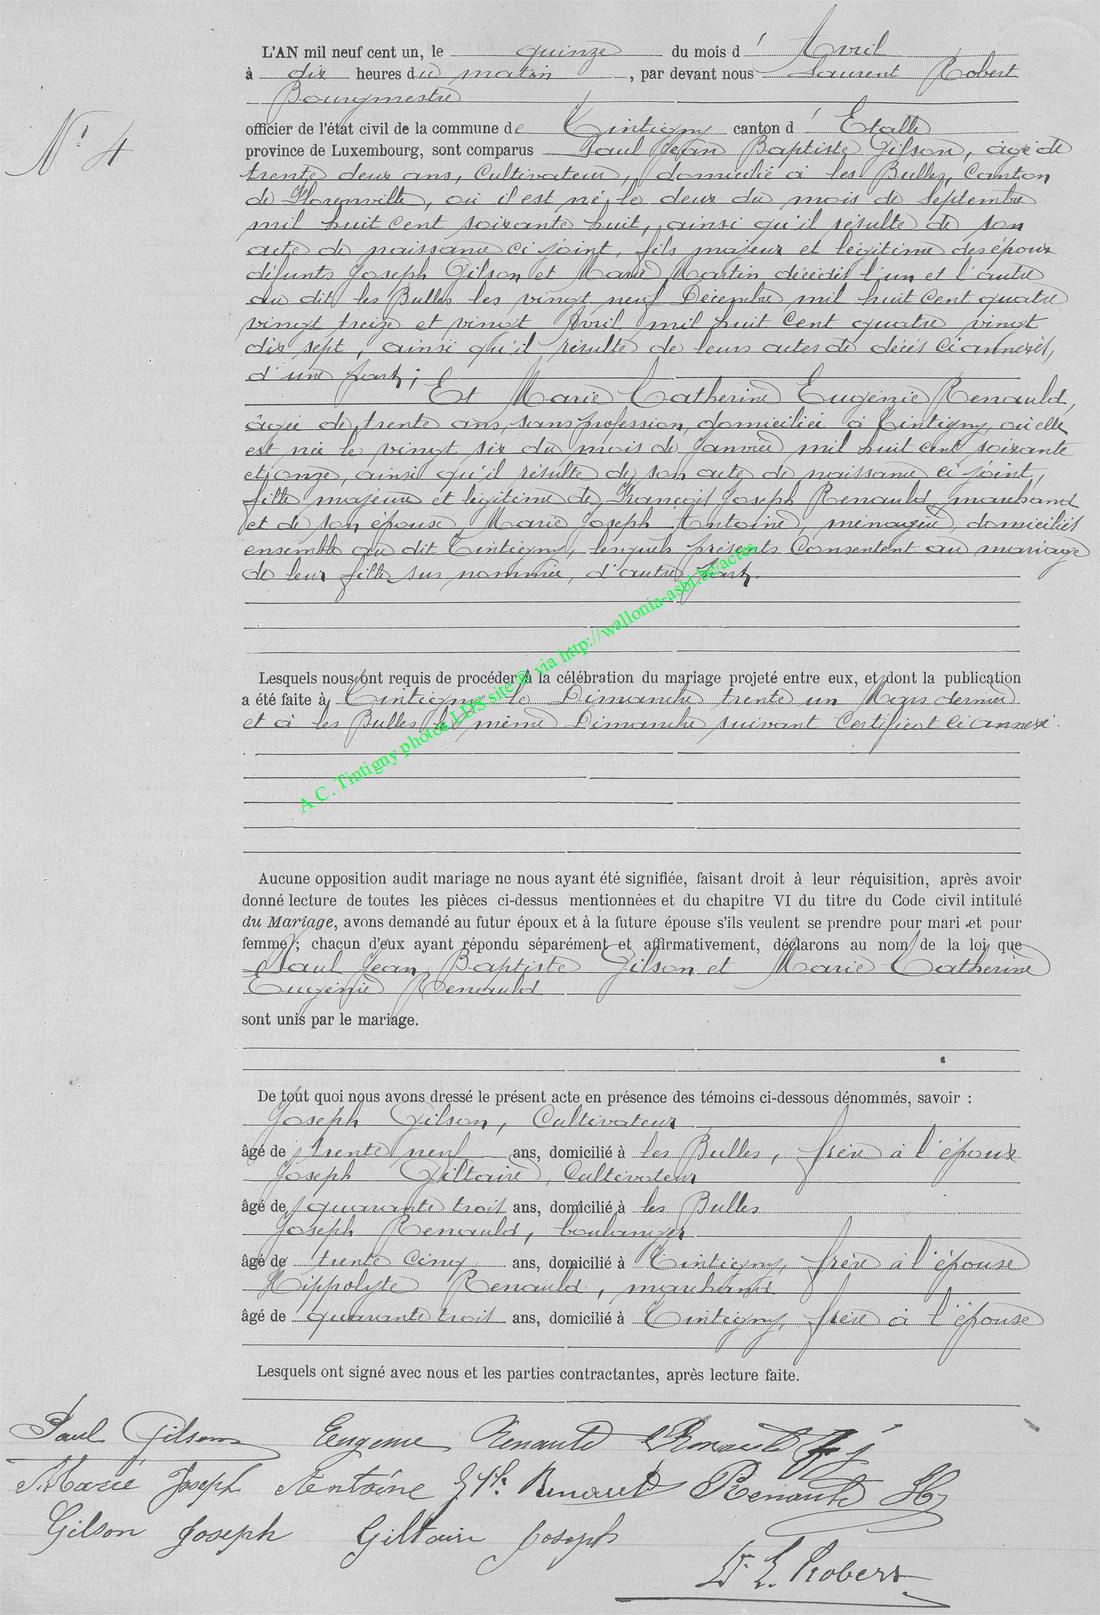 L'AN mil neuf cent un, le quinze du mois d' Avril
à dix heures du matin, par devant nous Laurent Robert
Bourgmestre
N° 4
officier de l'état civil de la commune de Tintigny canton d' Etalle
province de Luxembourg, sont comparus Paul Jean Baptiste Gilson, âgé de
trente deux ans, Cultivateur, domicilié à les Bulles, Canton
de Florenville, où il est né, le deux du mois de Septembre
mil huit cent soixante huit, ainsi qu'il résulte de son
acte de naissance ci joint, fils majeur et légitime des époux
défunts Joseph Gilson et Marie Martin décédés l'un et l'autre
au dit les Bulles les vingt neuf Décembre mil huit cent quatre
vingt treize et vingt Avril mil huit cent quatre vingt
dix sept, ainsi qu'il résulte de leurs actes de décès ci annexés,
d'une part;
Et Marie Catherine Eugénie Renauld,
âgée de trente ans, sans profession, domiciliée à Tintigny, où elle
est née le vingt six du mois de Janvier mil huit cent soixante
et onze, ainsi qu'il résulte de son acte de naissance ci joint,
fille majeure et légitime de François Joseph Renauld, marchand
et de son épouse Marie Joseph Antoine, ménagère, domiciliés
ensemble au dit Tintigny, lesquels présents Consentent au mariage
de leur fille sus nommée, d'autre part.
Lesquels nous ont requis de procéder à la célébration du mariage projeté entre eux, et dont la publication
a été faite à Tintigny le Dimanche trente un Mars dernier
et à les Bulles le même Dimanche suivant Certificat ci annexé.
A.C. Tintigny photos LDS site © via http://wallonia-asbl.be/actes
Aucune opposition audit mariage ne nous ayant été signifiée, faisant droit à leur réquisition, après avoir
donné lecture de toutes les pièces ci-dessus mentionnées et du chapitre VI du titre du Code civil intitulé
du Mariage, avons demandé au futur époux et à la future épouse s'ils veulent se prendre pour mari et pour
femme; chacun d'eux ayant répondu séparément et affirmativement, déclarons au nom de la loi que
Paul Jean Baptiste Gilson et Marie Catherine
Eugénie Renauld
sont unis par le mariage.
De tout quoi nous avons dressé le présent acte en présence des témoins ci-dessous dénommés, savoir :
Joseph Gilson, Cultivateur
âgé de trente neuf ans, domicilié à les Bulles, frère à l'époux
Joseph Giltaire, Cultivateur
âgé de quarante trois ans, domicilié à les Bulles
Joseph Renauld, boulanger
âgé de trente cinq ans, domicilié à Tintigny, frère à l'épouse
Hippolyte Renauld, marchand
âgé de quarante trois ans, domicilié à Tintigny, frère à l'épouse
Lesquels ont signé avec nous et les parties contractantes, après lecture faite.
Paul Gilson Eugénie Renauld Renauld
Marie Joseph Antoine Renauld Renauld Hte
Gilson Joseph Giltaire Joseph
Robert